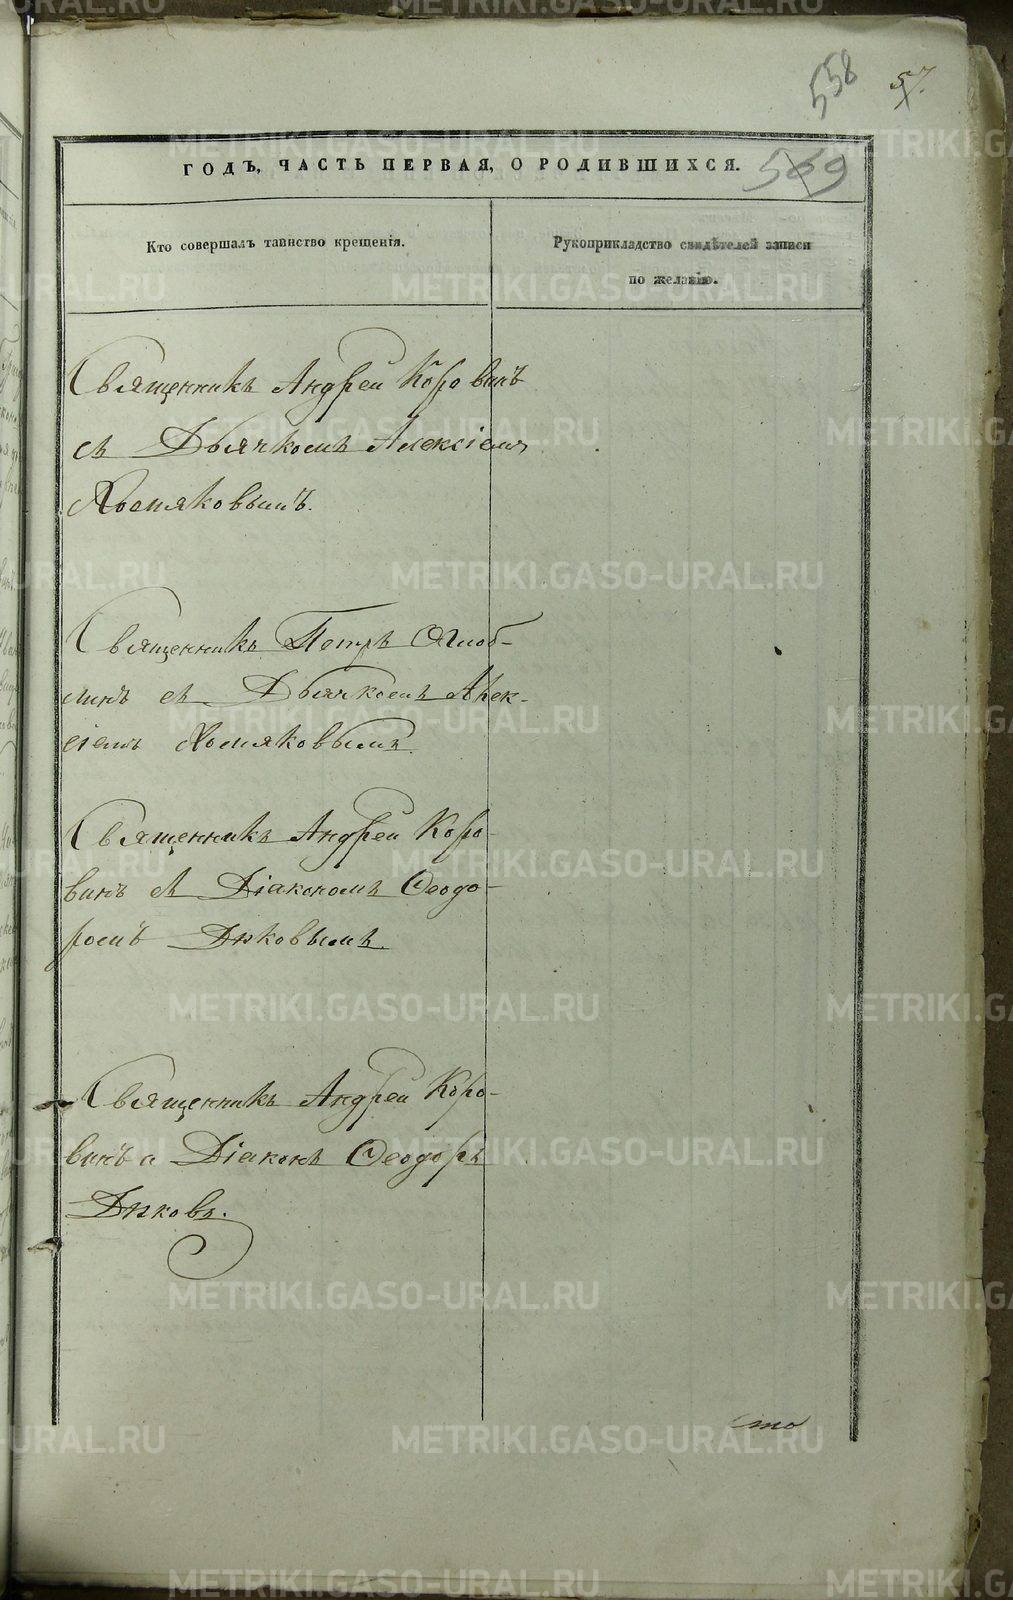 558 57.
ГОДЪ, ЧАСТЬ ПЕРВАЯ, О РОДИВШИХСЯ. 569
Кто совершалъ таинство крещенія.
Рукоприкладство свидѣтелей записи
по желанію.
Священникъ Андрей Коровинъ
съ Дьячкомъ Алексіемъ
Хомяковымъ.
Священникъ Петръ Оглоб-
линъ съ Дьячкомъ Алек-
сіемъ Хомяковымъ.
Священникъ Андрей Коро-
винъ съ Діакономъ Ѳеодо-
ромъ Дьковымъ.
Священникъ Андрей Коро-
винъ и Діаконъ Ѳеодоръ
Дьковъ.
сто
METRIKI.GASO-URAL.RU